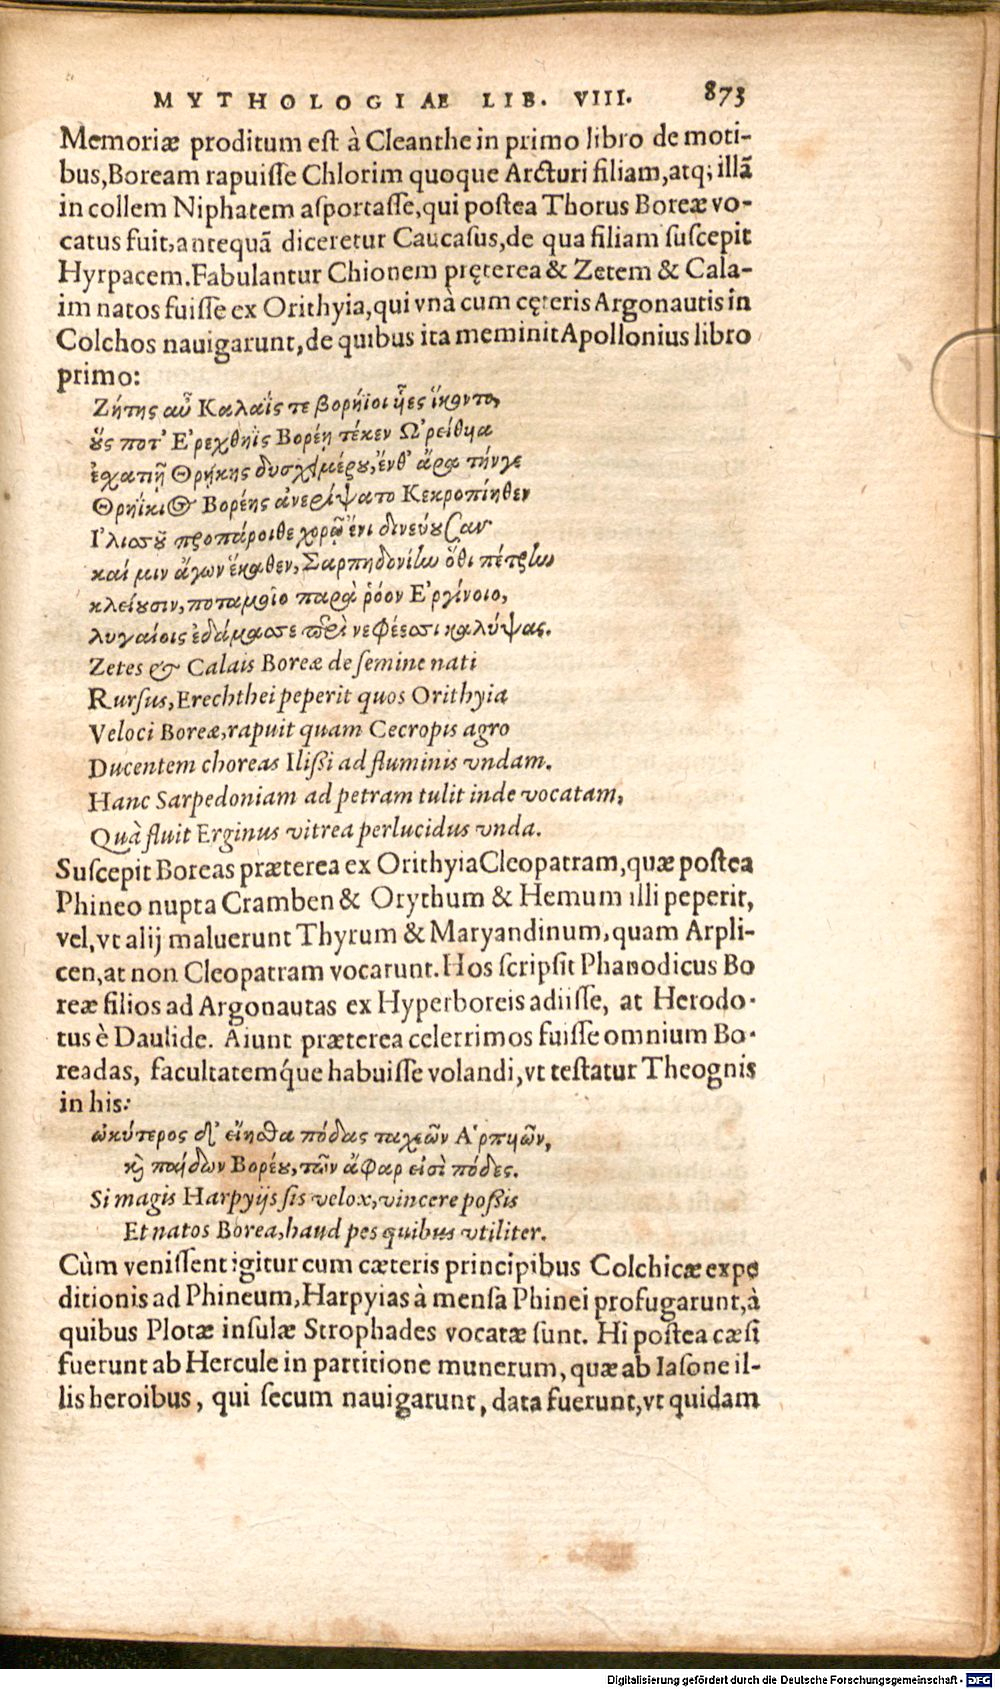 MYTHOLOGIAE LIB. VIII. 873
Memoriæ proditum est à Cleanthe in primo libro de moti-
bus, Boream rapuisse Chlorim quoque Arcturi filiam, atq; illā
in collem Niphatem asportasse, qui postea Thorus Boreæ vo-
catus fuit, antequā diceretur Caucasus, de qua filiam suscepit
Hyrpacem. Fabulantur Chionem pręterea & Zetem & Cala-
im natos fuisse ex Orithyia, qui vnà cum cęteris Argonautis in
Colchos nauigarunt, de quibus ita meminit Apollonius libro
primo:
Ζήτης αὖ Καλαΐς τε βορήϊοι ἧες ἵκοντο,
οὕς ποτ' Ε'ρεχθηῒς Βορέῃ τέκεν Ω'ρείθυια
ἐσχατιῇ Θρῄκης δυσχειμέρου, ἔνθ' ἄρα τήνγε
Θρηΐκιος Βορέης ἀνερείψατο Κεκροπίηθεν
Ι'λισσοῦ προπάροιθε χορῷ ἔνι δινεύουσαν
καί μιν ἄγων ἕκαθεν, Σαρπηδονίην ὅθι πέτρην
κλείουσιν, ποταμοῖο παρὰ ῥόον Ε'ργίνοιο,
λυγαίοις ἐδάμασσε περὶ νεφέεσσι καλύψας.
Zetes & Calais Boreæ de semine nati
Rursus, Erechthei peperit quos Orithyia
Veloci Boreæ, rapuit quam Cecropis agro
Ducentem choreas Ilißi ad fluminis vndam.
Hanc Sarpedoniam ad petram tulit inde vocatam,
Quà fluit Erginus vitrea perlucidus vnda.
Suscepit Boreas præterea ex Orithyia Cleopatram, quæ postea
Phineo nupta Cramben & Orythum & Hemum illi peperit,
vel, vt alij maluerunt Thyrum & Maryandinum, quam Arpli-
cen, at non Cleopatram vocarunt. Hos scripsit Phanodicus Bo
reæ filios ad Argonautas ex Hyperboreis adiisse, at Herodo-
tus è Daulide. Aiunt præterea celerrimos fuisse omnium Bo-
readas, facultatemq́ue habuisse volandi, vt testatur Theognis
in his:
ὠκύτερος δ' εἴησθα πόδας ταχεῶν Α'ρπυιῶν,
καὶ παίδων Βορέου, τῶν ἄφαρ εἰσὶ πόδες.
Si magis Harpyijs sis velox, vincere poßis
Et natos Borea, haud pes quibus vtiliter.
Cùm venissent igitur cum cæteris principibus Colchicæ expe
ditionis ad Phineum, Harpyias à mensa Phinei profugarunt, à
quibus Plotæ insulæ Strophades vocatæ sunt. Hi postea cæsi
fuerunt ab Hercule in partitione munerum, quæ ab Iasone il-
lis heroibus, qui secum nauigarunt, data fuerunt, vt quidam
Digitalisierung gefördert durch die Deutsche Forschungsgemeinschaft - DFG